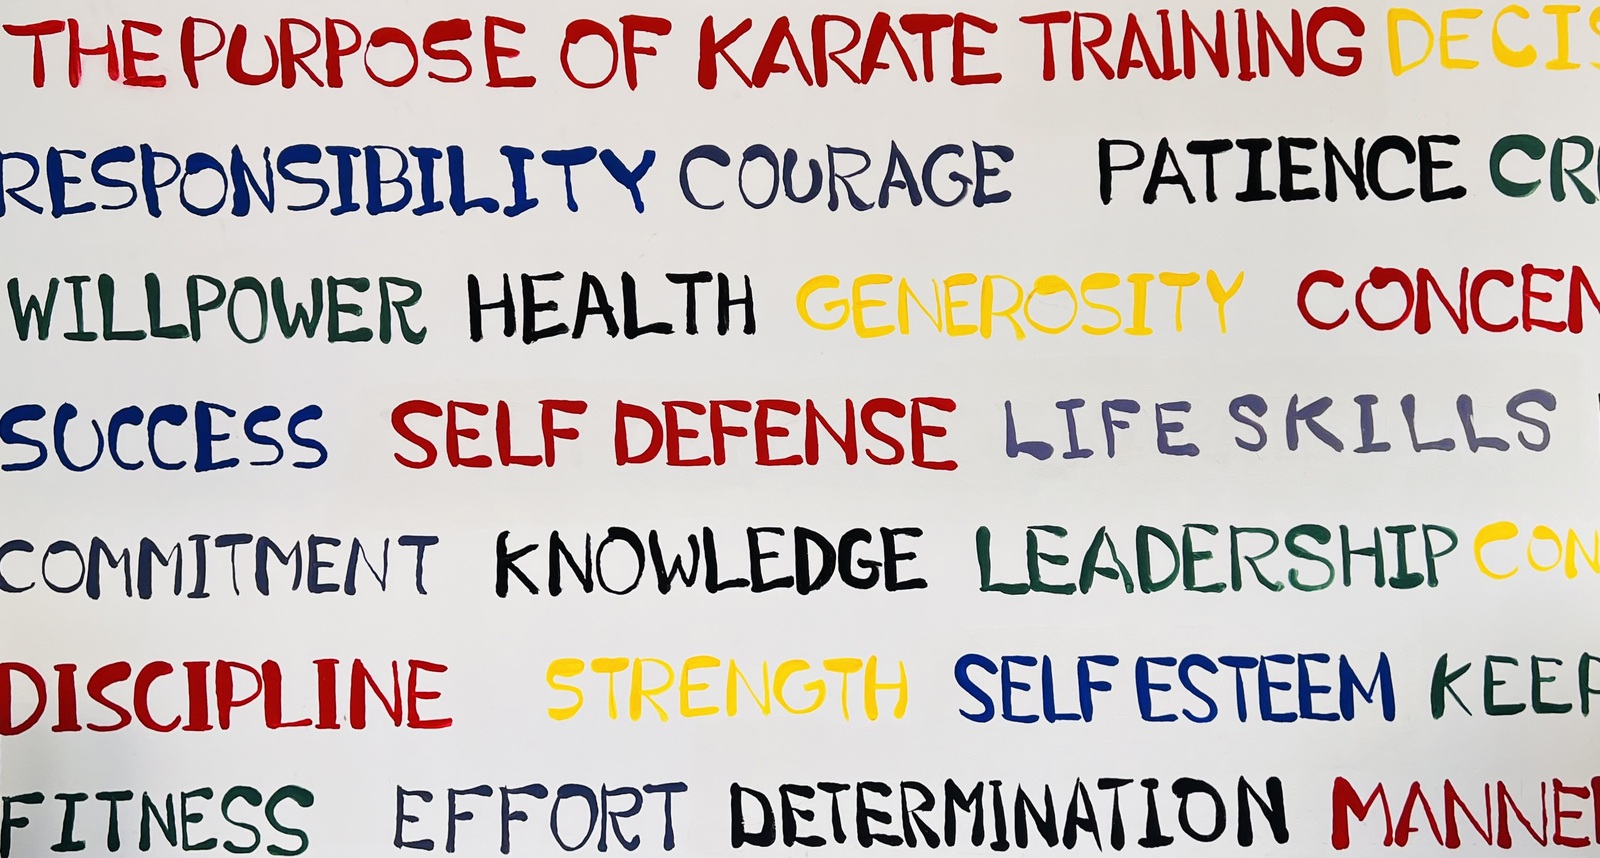 THE PURPOSE OF KARATE TRAINING DECIS
RESPONSIBILITY COURAGE PATIENCE CR
WILLPOWER HEALTH GENEROSITY CONCEN
SUCCESS SELF DEFENSE LIFE SKILLS
COMMITMENT KNOWLEDGE LEADERSHIP CON
DISCIPLINE STRENGTH SELF ESTEEM KEEP
FITNESS EFFORT DETERMINATION MANNE